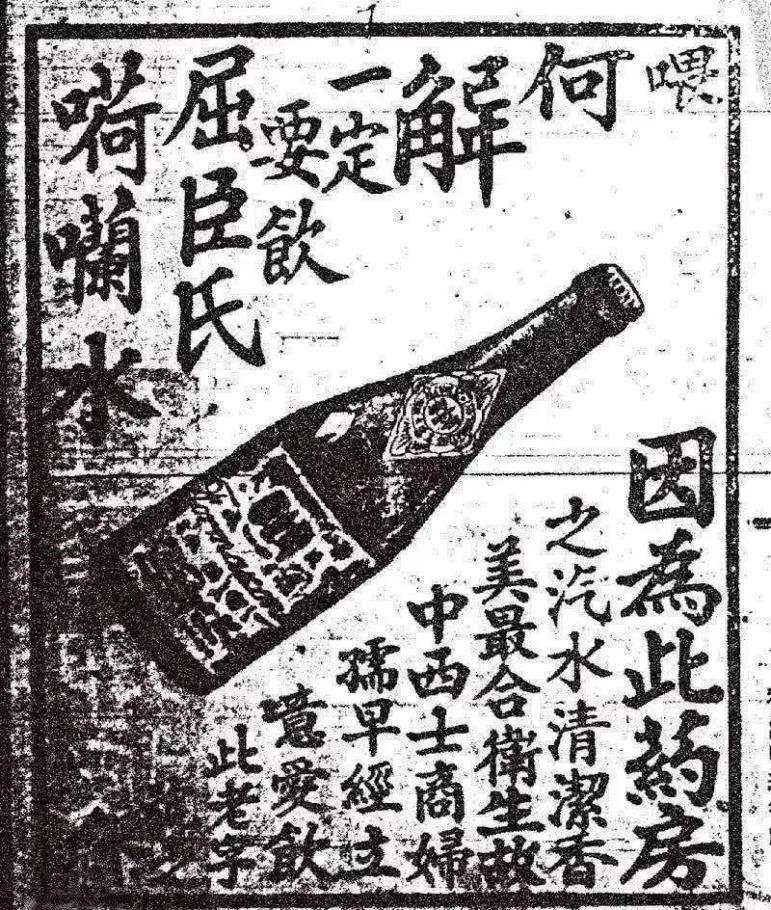 喂
何
解
一定
要飲
屈臣氏
嗬囒水
因為此葯房
之汽水清潔香
美最合衛生故
中西士商婦
孺早經立
意愛飲
此老字